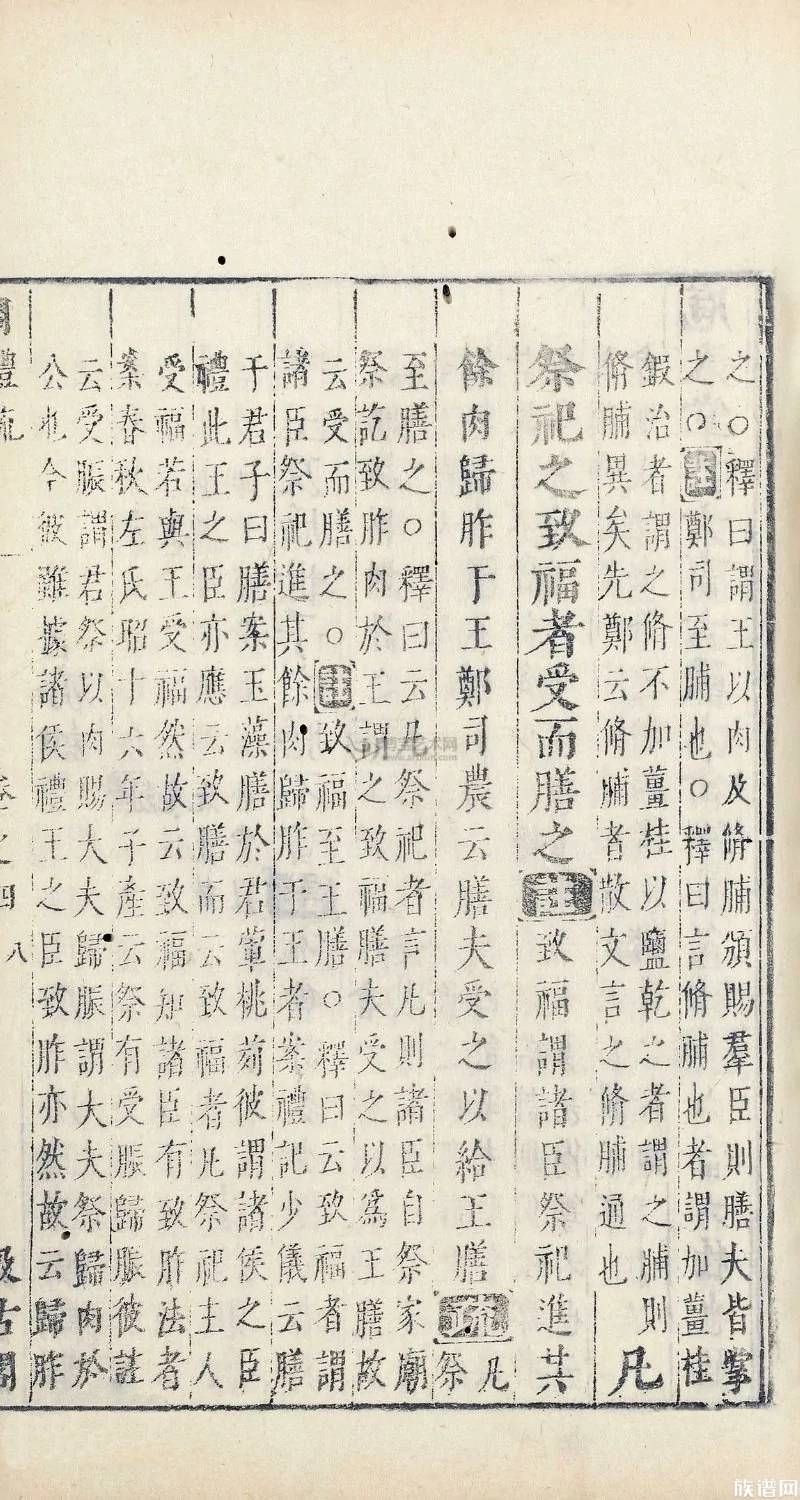 之○釋曰謂王以肉及脩脯頒賜羣臣則膳夫皆掌
之○注鄭司至脯也○釋曰言脩脯也者謂加薑桂
鍛治者謂之脩不加薑桂以鹽乾之者謂之脯則
脩脯異矣先鄭云脩脯者散文言之脩脯通也
凡
祭祀之致福者受而膳之注致福謂諸臣祭祀進其
餘肉歸胙于王鄭司農云膳夫受之以給王膳疏凡
祭
至膳之○釋曰云凡祭祀者言凡則諸臣自祭家廟
祭訖致胙肉於王謂之致福膳夫受之以為王膳故
云受而膳之○注致福至王膳○釋曰云致福者謂
諸臣祭祀進其餘肉歸胙于王者案禮記少儀云膳
于君子曰膳案玉藻膳於君葷桃茢彼謂諸侯之臣
禮此王之臣亦應云致膳而云致福者凡祭祀主人
受福若與王受福然故云致福知諸臣有致胙法者
案春秋左氏昭十六年子產云祭有受脤歸脤彼註
云受脤謂君祭以肉賜大夫歸脤謂大夫祭歸肉於
公也今彼雖據諸侯禮王之臣致胙亦然故云歸胙
周禮疏
卷之四
八
汲古閣
族谱网